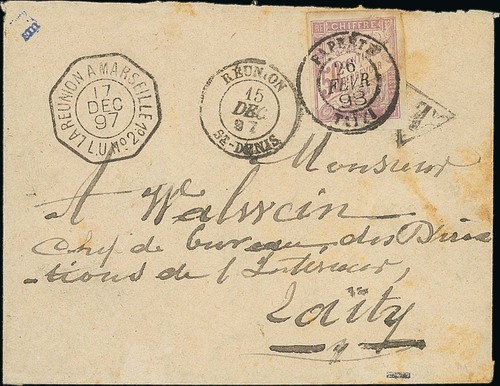 CHIFFRE
PAPEETE
26
FEVR
98
TAITI
LA REUNION A MARSEILLE
17
DEC
97
L.U.No2
REUNION
15
DEC
97
ST-DENIS
T
Monsieur
A Walwein
Chef de bureau des Direc
-tions de l'Intérieur,
Taïty